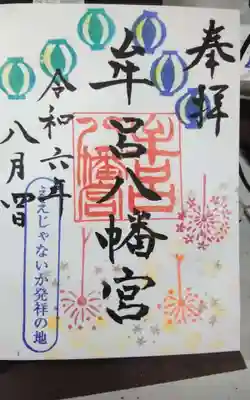 奉拝
牟呂八幡宮
牟呂八幡宮
令和六年
八月四日
ええじゃないか発祥の地